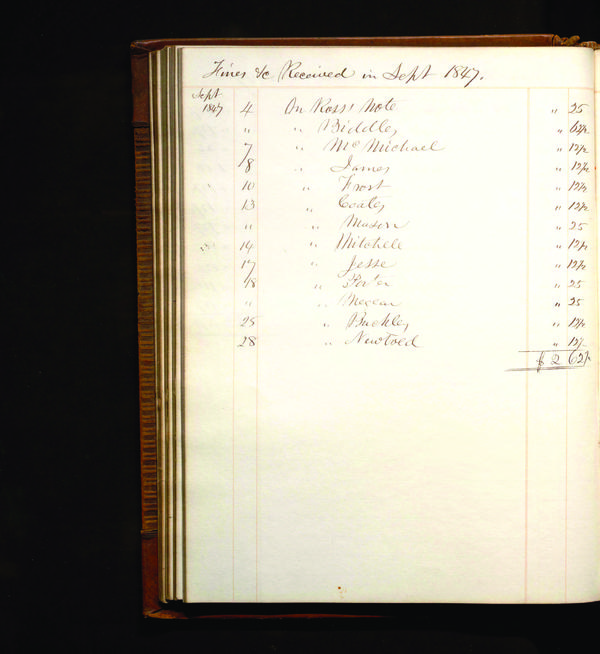 Fines &c Received in Sept 1847.
Sept
1847 4 On Ross' Note " 25
" " Biddles " 62½
7 " McMichael " 12½
/8 " James " 12½
10 " Frost " 12½
13 " Coales " 12½
" " Mason " 25
14 " Mitchell " 12½
17 " Jesse " 12½
18 " Porter " 25
" " " 25
25 " Buckley " 12½
28 " Newbold " 12½
$ 2 62½